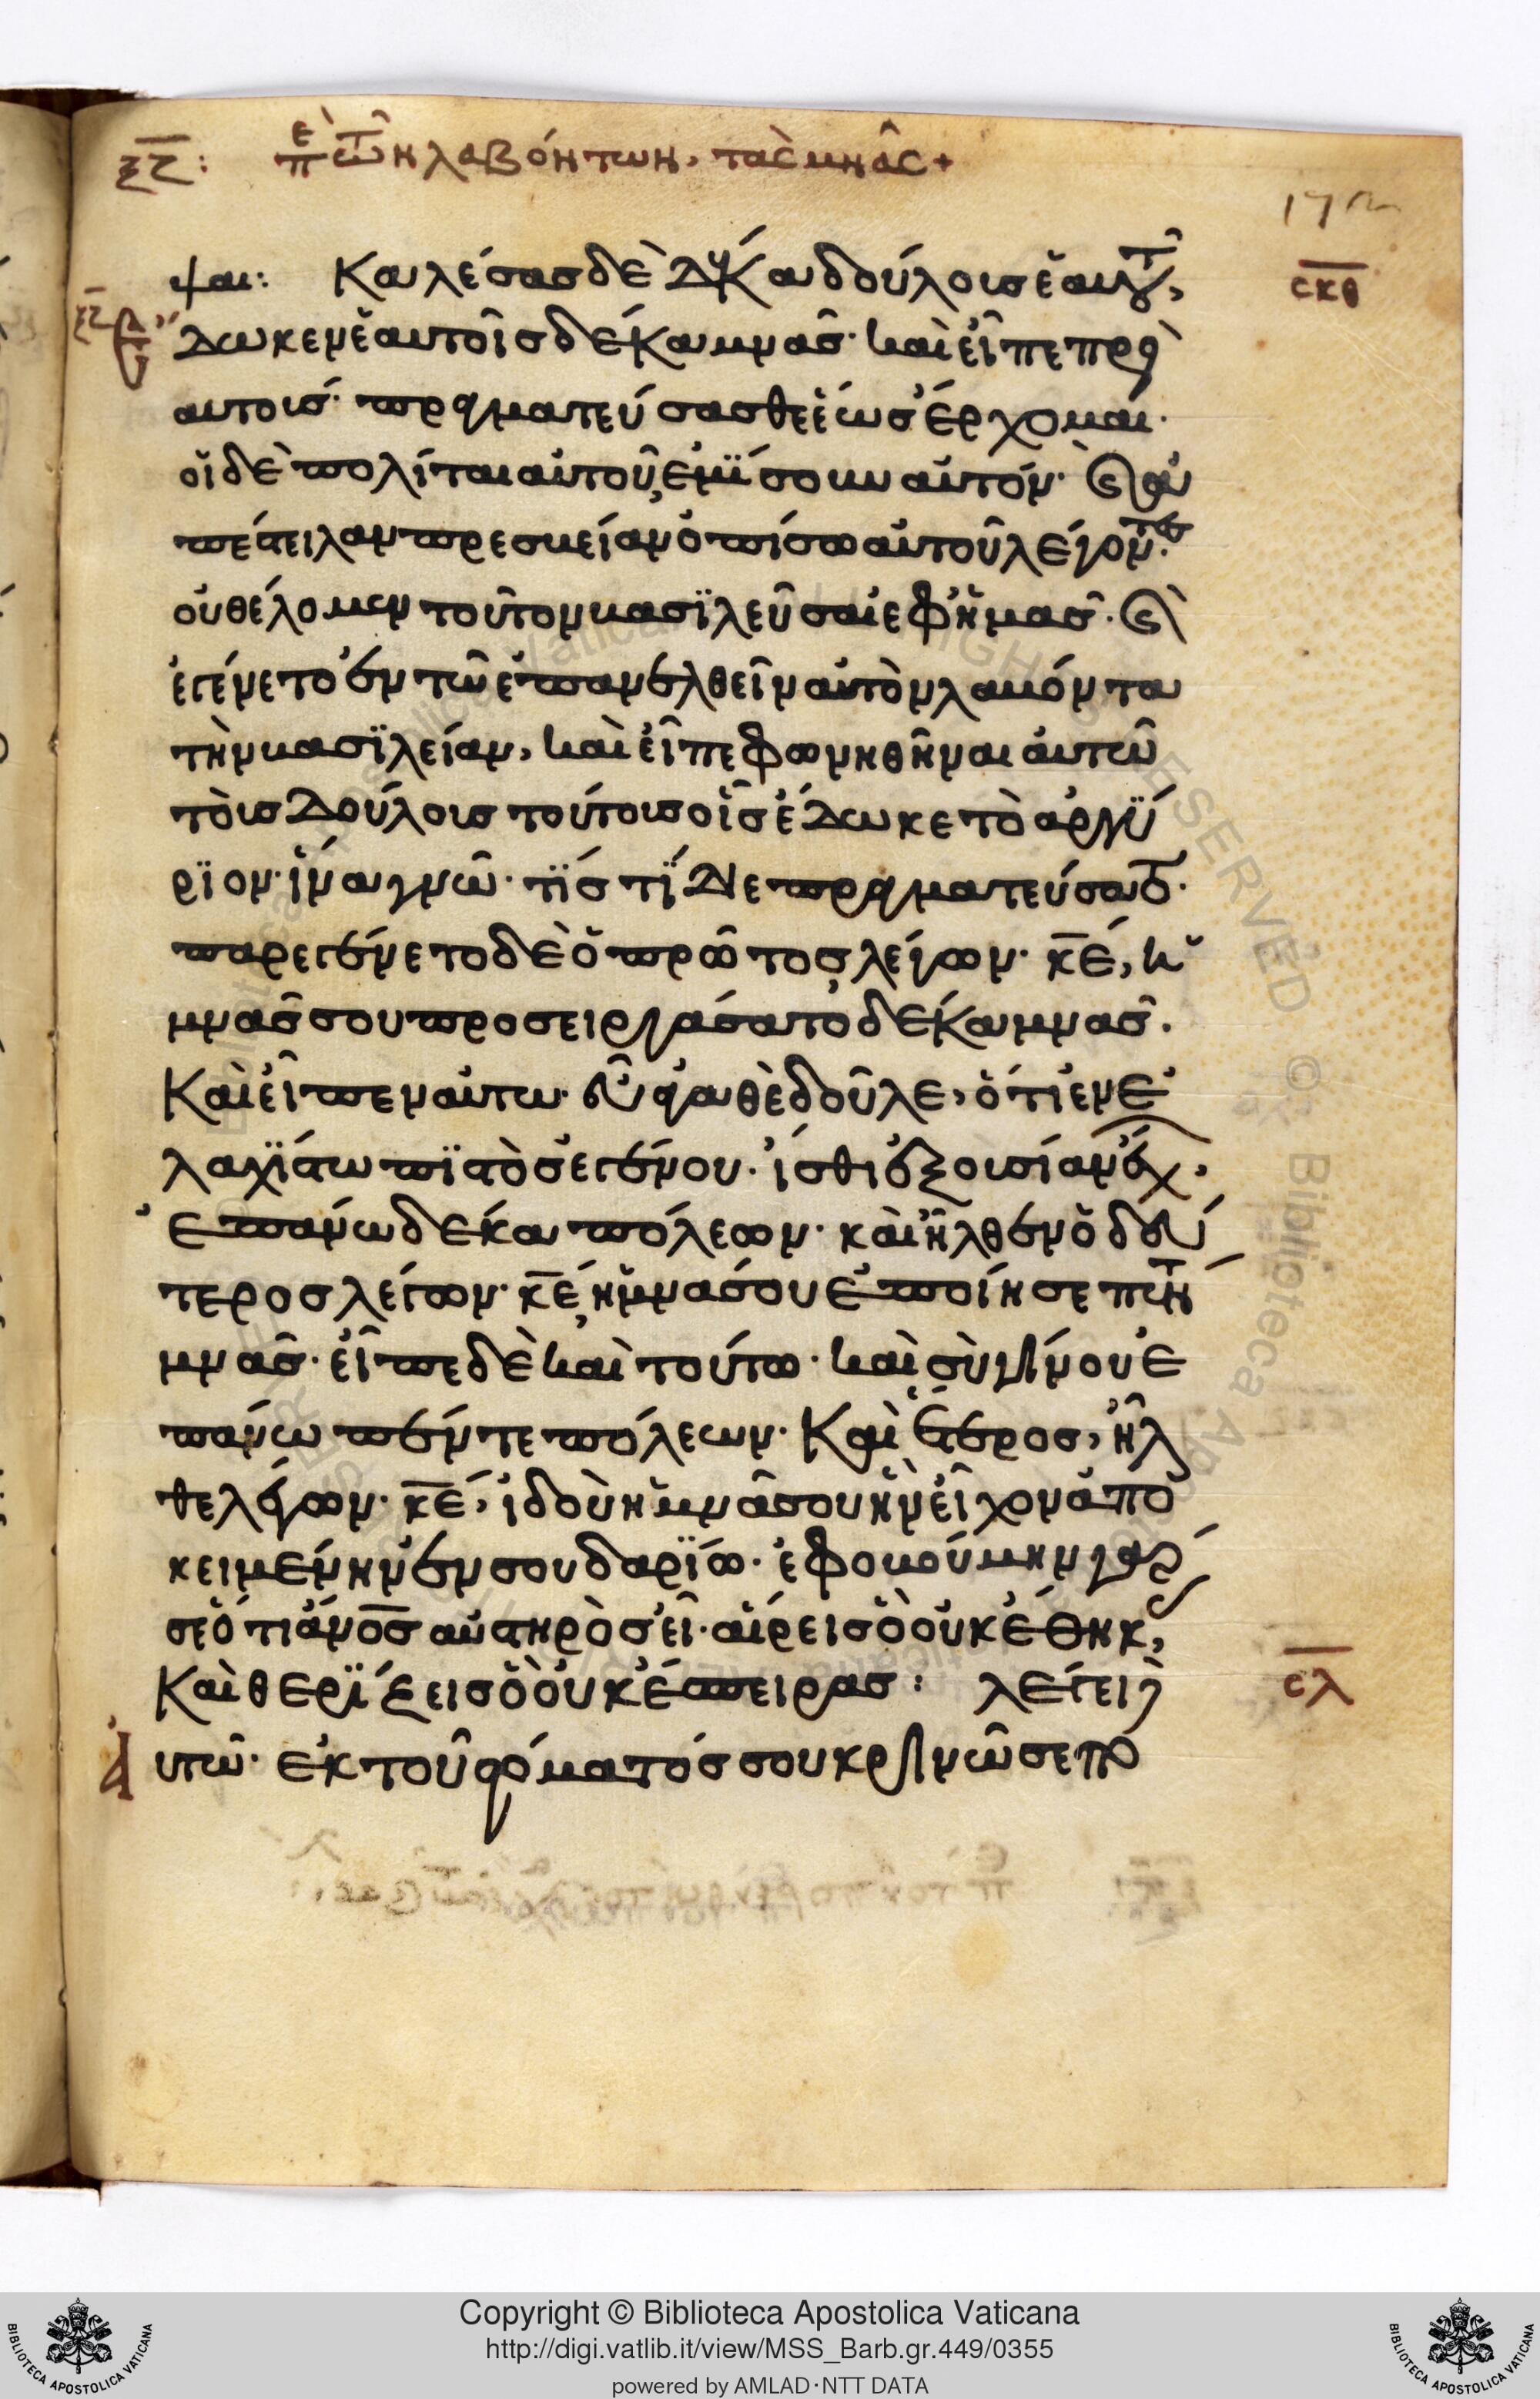 ξζ: περὶ τῶν λαβόντων, τὰς μνᾶς +
17
ψαι: Καλέσας δὲ δέκα δούλοις ἑαυτοῦ,
σκθ
δωκεν ἑαυτοῖς δέκα μνᾶς· καὶ εἶπε πρὸ
αυτοισ· πραγματεύσασθε ἕως ἔρχομαι·
οἱ δὲ πολίται αὐτοῦ, ἐμίσουν αὐτόν· καὶ ἀ
πέστειλαν πρεσβείαν ὀπίσω αὐτοῦ λέγοντες·
οὐ θέλομεν τοῦτον βασϊλεῦσαι ἐφ' ἡμᾶς· καὶ
ἐγένετο ἐν τῶ ἐπανελθεῖν αὐτὸν λαβόντα
τὴν βασϊλείαν, καὶ εἶπε φωνηθῆναι αὐτῶ
τοὶς δούλοις τούτοις οἷς ἔδωκε τὸ ἀργύ
ρϊον· ἵνα γνῶ· τίς τί διεπραγματεύσατο·
παρεγένετο δὲ ὁ πρῶτος λέγων· κ̅ε̅, ἡ
μνᾶς σου προσειργάσατο δέκα μνᾶς.
Καὶ εἶπεν αὐτω· εὖ ἀγαθὲ δοῦλε, ὅτι ἐν ἐ
λαχίστω πϊστὸς ἐγένου· ἴσθι ἐξουσίαν ἔχ,
ἐπάνω δέκα πόλεων· καὶ ἦλθεν ὁ δεύ
τερος λέγων· κ̅ε̅, ἡ μνάς σου ἐποίησε πέντε
μνᾶς· εἶπε δὲ καὶ τούτω· καὶ σὺ γίνου ἐ
πάνω πέντε πόλεων· Καὶ ἕτερος, ἦλ
θε λέγων· κ̅ε̅, ἰδοὺ ἡ μνᾶ σου ἣν εἶχον ἀπο
κειμένην ἐν σουδαρϊω· ἐφοβούμην γάρ
σε ὅτι ἄν̅ο̅ς̅ αὐστηρὸς εἶ· αἴρεις ὃ οὐκ ἔθηκας,
Καὶ θερϊζεις ὃ οὐκ ἔσπειρας: λέγει
σλ
ἀυτῶ· ἐκ τοῦ στόματός σου κρίνω σε πο
Copyright © Biblioteca Apostolica Vaticana
http://digi.vatlib.it/view/MSS_Barb.gr.449/0355
powered by AMLAD·NTT DATA
BIBLIOTECA APOSTOLICA VATICANA
BIBLIOTECA APOSTOLICA VATICANA